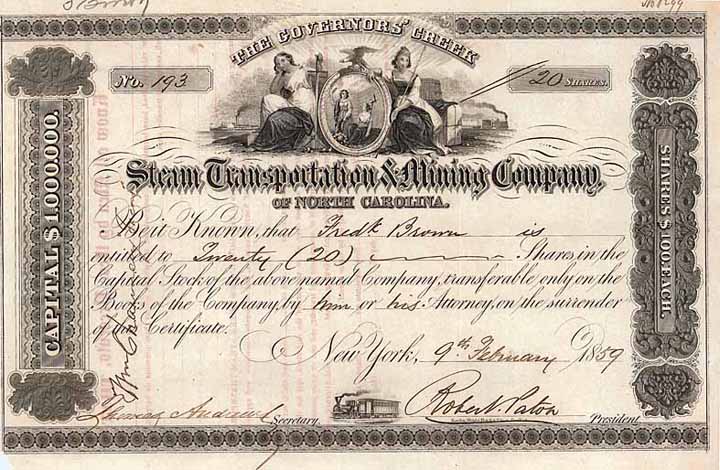 THE GOVERNORS' CREEK
No. 193
20 SHARES.
CAPITAL $1,000,000.
SHARES $100 EACH.
Steam Transportation & Mining Company,
OF NORTH CAROLINA.
Be it Known, that Fredk Brown is
entitled to Twenty (20) Shares, in the
Capital Stock of the above named Company, transferable only on the
Books of the Company, by him or his Attorney, on the surrender
of this Certificate.
New York, 9th February 1859
Secretary.
Robert Paton
President.